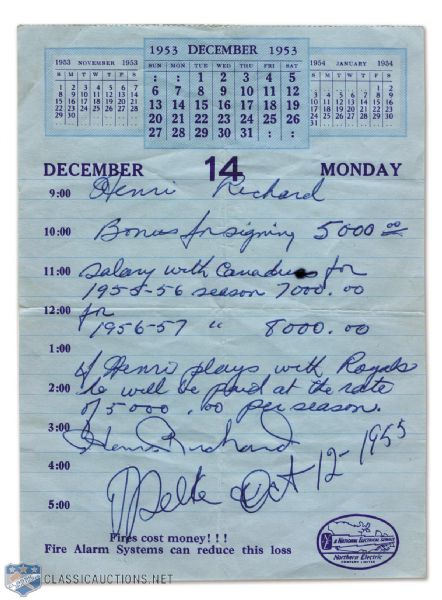 1953 NOVEMBER 1953
S M T W T F S
1 2 3 4 5 6 7
8 9 10 11 12 13 14
15 16 17 18 19 20 21
22 23 24 25 26 27 28
29 30
1953 DECEMBER 1953
SUN MON TUE WED THU FRI SAT
: : 1 2 3 4 5
6 7 8 9 10 11 12
13 14 15 16 17 18 19
20 21 22 23 24 25 26
27 28 29 30 31 : :
1954 JANUARY 1954
S M T W T F S
1 2
3 4 5 6 7 8 9
10 11 12 13 14 15 16
17 18 19 20 21 22 23
24 25 26 27 28 29 30
31
DECEMBER 14 MONDAY
9:00 Henri Richard
10:00 Bonus for signing 5000.00
11:00 Salary with Canadiens for
1955-56 season 7000.00
12:00 for
1956-57 " 8000.00
1:00
if Henri plays with Royals
2:00 he will be paid at the rate
of 5000.00 per season.
3:00 Henri Richard
4:00
Oct 12-1955
5:00
Fires cost money!!!
Fire Alarm Systems can reduce this loss
A NATIONAL ELECTRICAL SERVICE
Northern Electric
COMPANY LIMITED
CLASSICAUCTIONS.NET